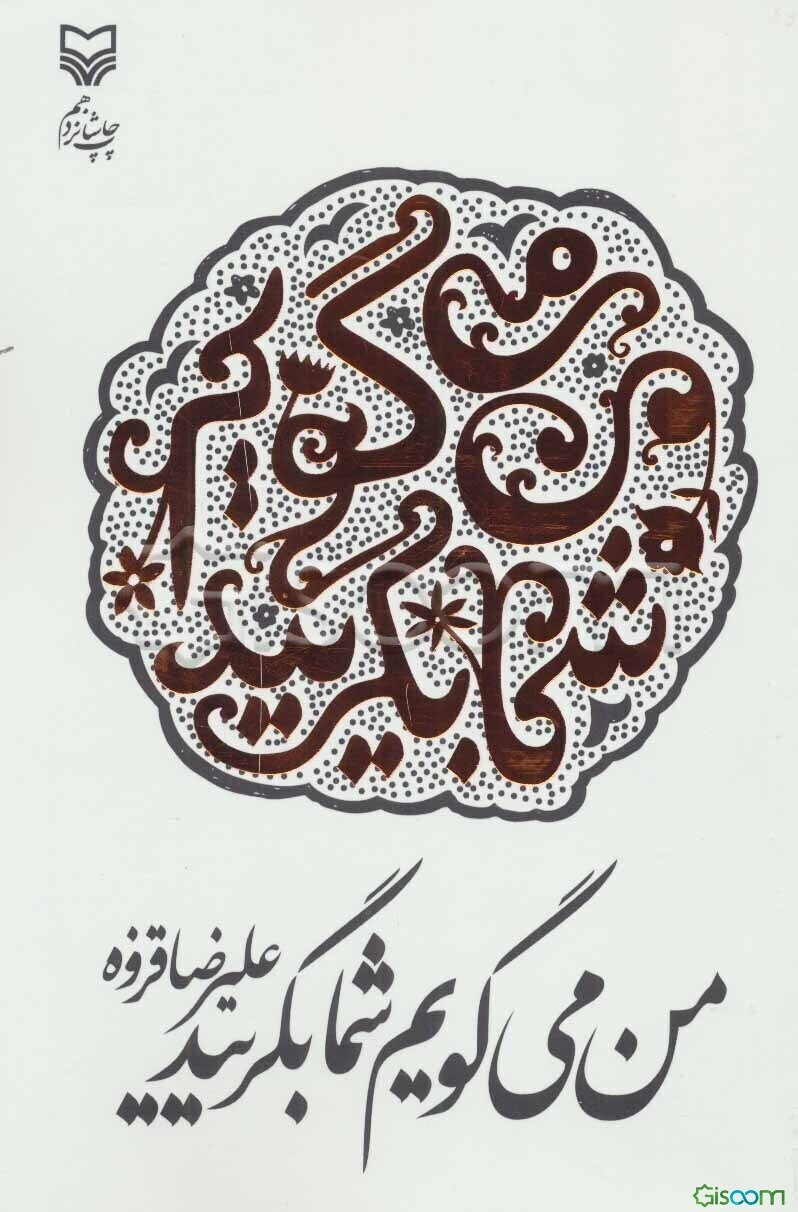 چاپ شانزدهم
من می
گویم
شما بگریید
علیرضا قزوه
من می گویم شما بگریید
Gisoom